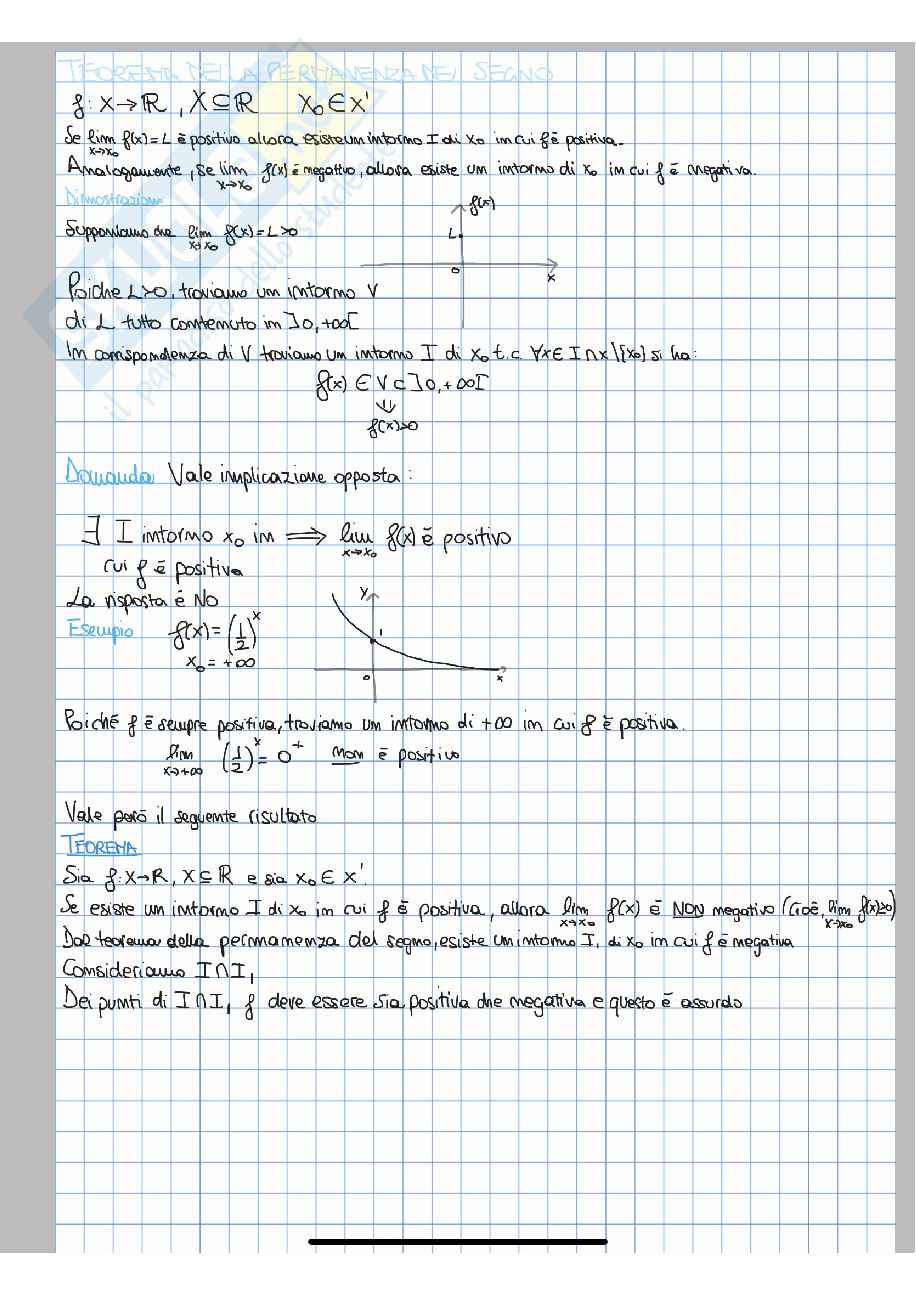 TEOREMA DELLA PERMANENZA DEL SEGNO
f: X→ℝ, X⊆ℝ x₀∈X'
Se lim x→x₀ f(x)=L è positivo allora esiste un intorno I di x₀ in cui f è positiva.
Analogamente, se lim x→x₀ f(x) è negativo, allora esiste un intorno di x₀ in cui f è negativa.
Dimostrazione
Supponiamo che lim x→x₀ f(x)=L>0
f(x)
L
0
x
Poiche L>0, troviamo un intorno V
di L tutto contenuto in ]0,+∞[
In corrispondenza di V troviamo un intorno I di x₀ t.c. ∀x∈I∩X\{x₀} si ha:
f(x) ∈ V ⊂ ]0,+∞[
⇓
f(x)>0
Domanda Vale implicazione opposta:
∃ I intorno x₀ in ⟹ lim x→x₀ f(x) è positivo
cui f è positiva
La risposta è No
Esempio f(x)=(1/2)^x
x₀=+∞
y
1
0
x
Poiché f è sempre positiva, troviamo un intorno di +∞ in cui f è positiva.
lim x→+∞ (1/2)^x = 0⁺ non è positivo
Vale però il seguente risultato
TEOREMA
Sia f: X→ℝ, X⊆ℝ e sia x₀∈X'.
Se esiste un intorno I di x₀ in cui f è positiva, allora lim x→x₀ f(x) è NON negativo (Cioè, lim x→x₀ f(x)≥0)
Dal teorema della permanenza del segno, esiste un intorno I₁ di x₀ in cui f è negativa
Consideriamo I∩I₁
Dei punti di I∩I₁ f deve essere sia positiva che negativa e questo è assurdo
il paradiso dello studente